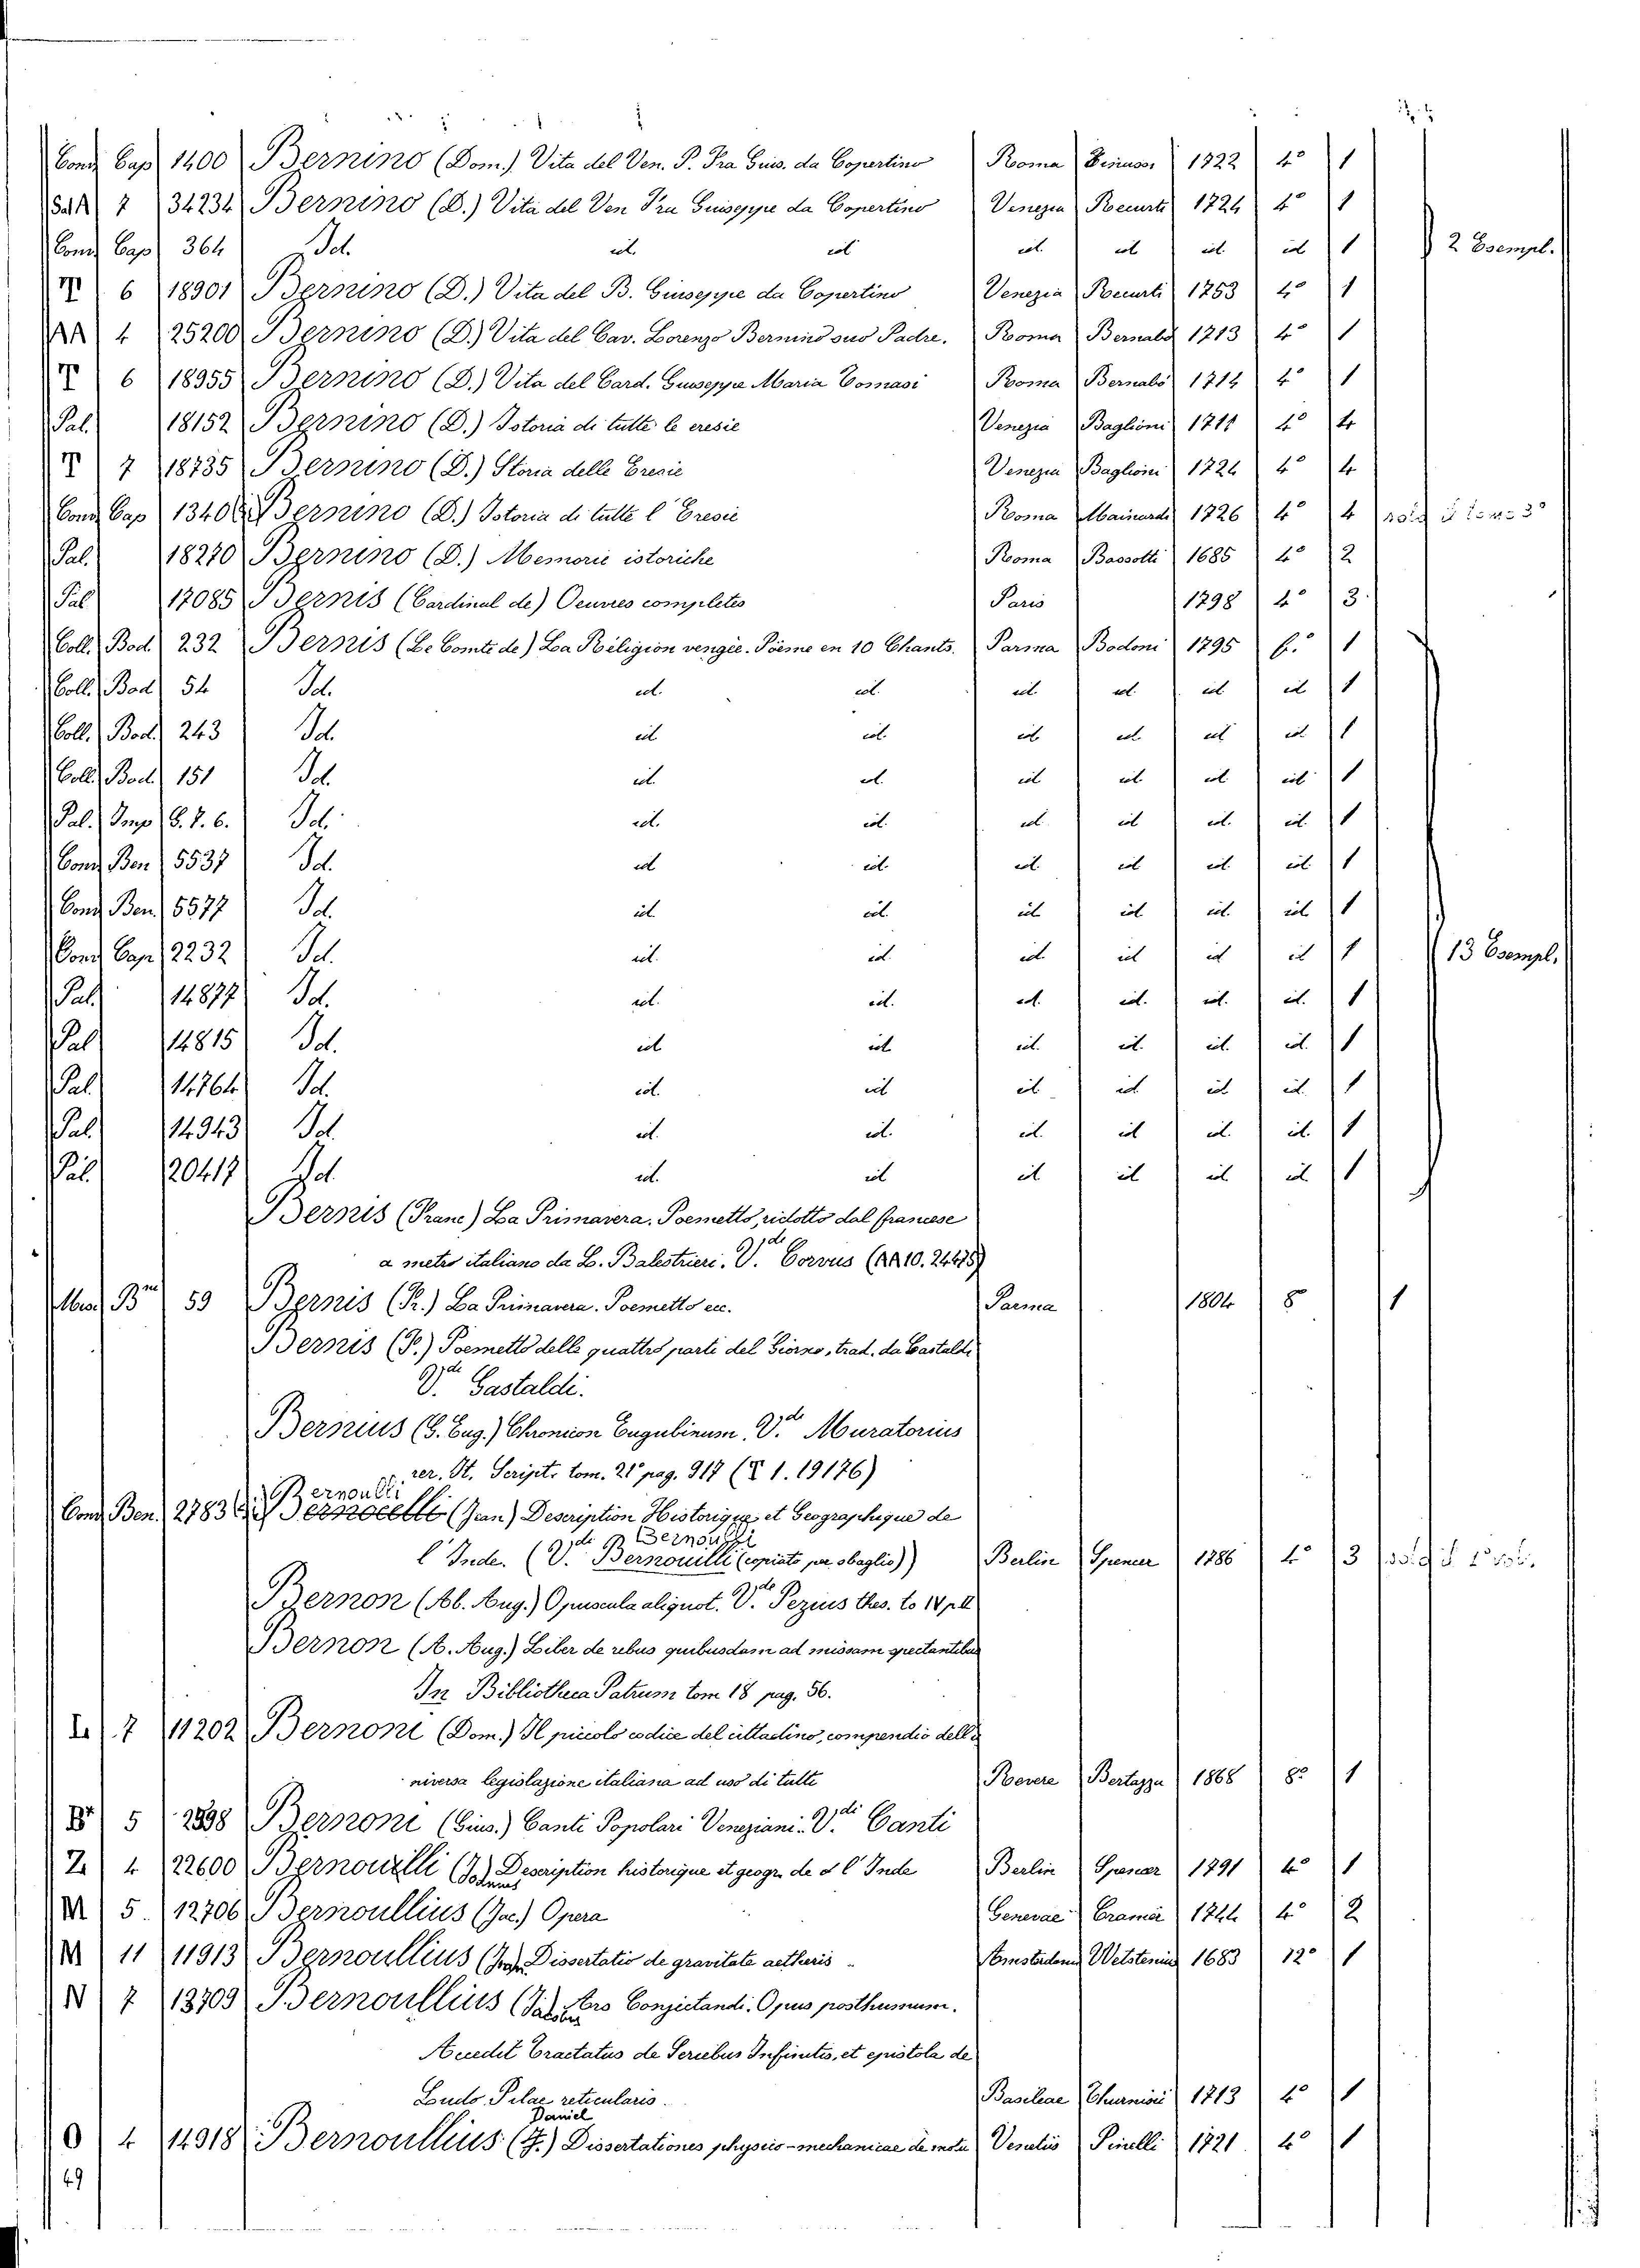 Cons Cap 1400 Bernino (Dom.) Vita del Ven. P. Fra Gius. da Copertino Roma 1722 4° 1
Sal A 7 34234 Bernino (D.) Vita del Ven Fra Guiseppe da Copertino Venezia Recurti 1724 4° 1
Cons Cap 364 Id. id. id id. id id. id 1 2 Esempl.
T 6 18901 Bernino (D.) Vita del B. Giuseppe da Copertino Venezia Recurti 1753 4° 1
AA 4 25200 Bernino (D.) Vita del Cav. Lorenzo Bernino suo Padre. Roma Bernabò 1713 4° 1
T 6 18955 Bernino (D.) Vita del Card. Giuseppe Maria Tomasi Roma Bernabò 1714 4° 1
Pal. 18152 Bernino (D.) Istoria di tutte le eresie Venezia Baglioni 1711 4° 4
T 7 18735 Bernino (D.) Storia delle Eresie Venezia Baglioni 1724 4° 4
Cons Cap 1340 Bernino (D.) Istoria di tutte l' Eresie Roma Mainardi 1726 4° 4 solo il tomo 3°
Pal. 18270 Bernino (D.) Memorie istoriche Roma Bassotti 1685 4° 2
Pal 17085 Bernis (Cardinal de) Oeuvres completes Paris 1798 4° 3
Coll. Bod. 232 Bernis (Le Comte de) La Réligion vengée. Poëme en 10 Chants. Parma Bodoni 1795 f.° 1
Coll. Bod 54 Id. id. id. id. id. id id 1
Coll. Bod. 243 Id. id id. id id id id. 1
Coll. Bod. 151 Id. id. id. id id. id. id 1
Pal. Imp G. 7. 6. Id. id. id. id id id. id. 1
Cons Ben 5537 Id. id id. id. id id. id. 1
Cons Ben. 5577 Id. id. id. id id. id. id 1
Cons Cap 2232 Id. id. id. id. id id id 1 13 Esempl.
Pal. 14877 Id. id. id. id. id. id. id. 1
Pal 14815 Id. id id id. id. id. id. 1
Pal. 14764 Id. id. id id id. id id. 1
Pal. 14943 Id. id. id. id. id id. id. 1
Pal. 20417 Id. id. id id id id id. 1
Bernis (Franc) La Primavera. Poemetto, ridotto dal francese
a metro italiano da L. Balestrieri. V.de Corvus (AA 10. 24475)
Misc B.ne 59 Bernis (F.) La Primavera. Poemetto ec. Parma 1804 8° 1
Bernis (F.) Poemetto delle quattro parti del Giorno, trad. da Gastaldi
V.de Gastaldi.
Bernius (G. Eug.) Chronicon Eugubinum. V.de Muratorius
rer. It. Script. tom. 21° pag. 917 (T 1. 19176)
Bernoulli
Cons Ben. 2783 (Jean) Description Historique et Geographique de
Bernoulli
l' Inde. (V.di Bernouilli (copiato per sbaglio)) Berlin Spener 1786 4° 3 solo il 1° vol.
Bernon (Ab. Aug.) Opuscula aliquot. V.de Pezius thes. to IV p. II
Bernon (A. Aug.) Liber de rebus quibusdam ad missam spectantibus
In Bibliotheca Patrum tom 18 pag. 56.
L 7 11202 Bernoni (Dom.) Il piccolo codice del cittadino, compendio dell' u
niversa legislazione italiana ad uso di tutti Revere Bertazza 1868 8° 1
5 2898 Bernoni (Gius.) Canti Popolari Veneziani. V.di Canti
Z 4 22600 Bernouilli (J.) Description historique et geogr. de d l' Inde Berlin Spener 1791 4° 1
Johannes
M 5. 12706 Bernoullius (Jac.) Opera Genevae Cramer 1744 4° 2
M 11 11913 Bernoullius Dissertatio de gravitate aetheris Amsterdam Wetstenius 1683 12° 1
N 7 13709 Bernoullius (Jacobus) Ars Conjectandi. Opus posthumum.
Accedit Tractatus de Seriebus Infinitis, et epistola de
Ludo Pilae reticularis. Basileae Thurnisii 1713 4° 1
Daniel
O 4 14918 Bernoullius (F.) Dissertationes physico-mechanicae de motu Venetiis Pinelli 1721 4° 1
49